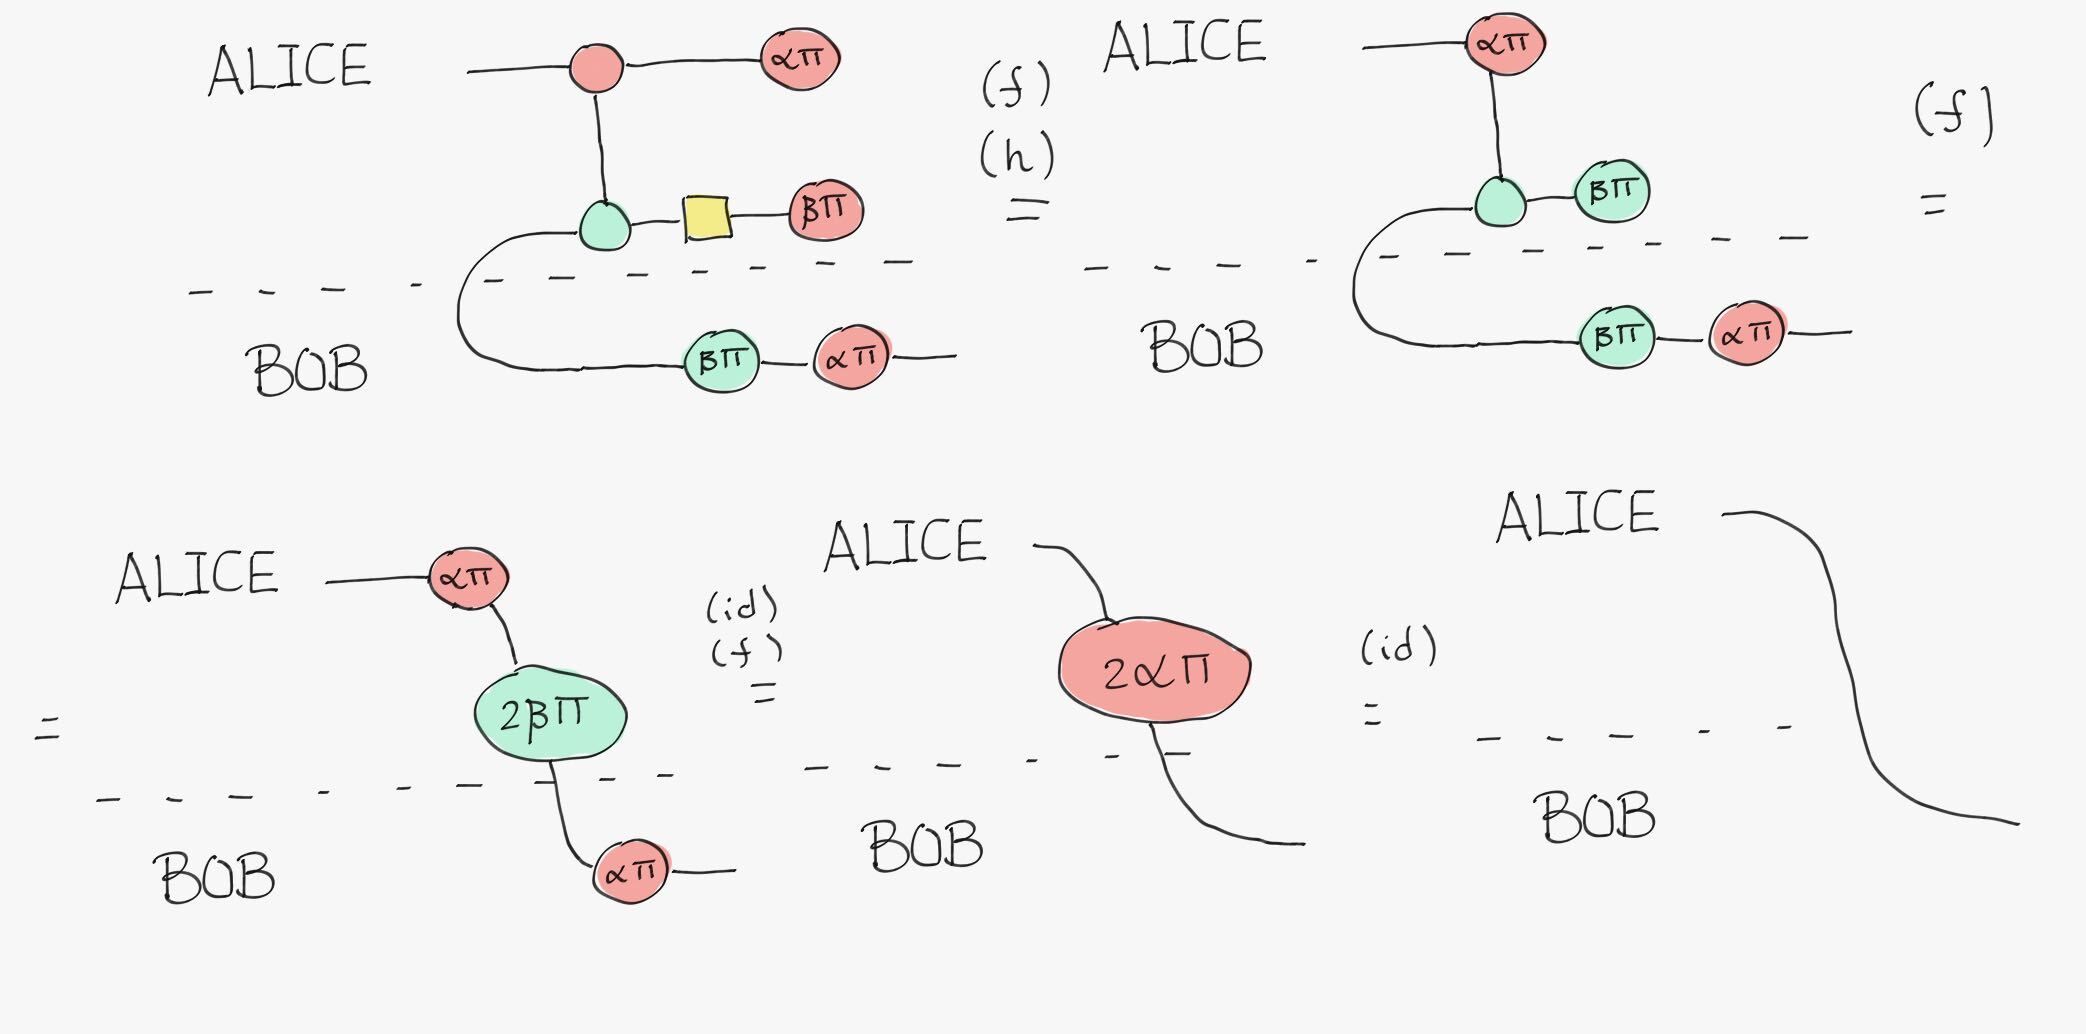 ALICE
απ
βπ
BOB
βπ
απ
(f)
(h)
=
ALICE
απ
βπ
BOB
βπ
απ
(f)
=
=
ALICE
απ
2βπ
BOB
απ
(id)
(f)
=
ALICE
2απ
BOB
(id)
=
ALICE
BOB